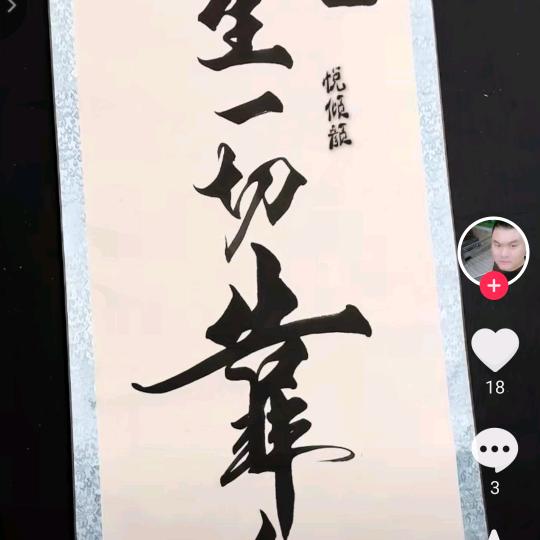 生一切靠
悦倾颜
18
3